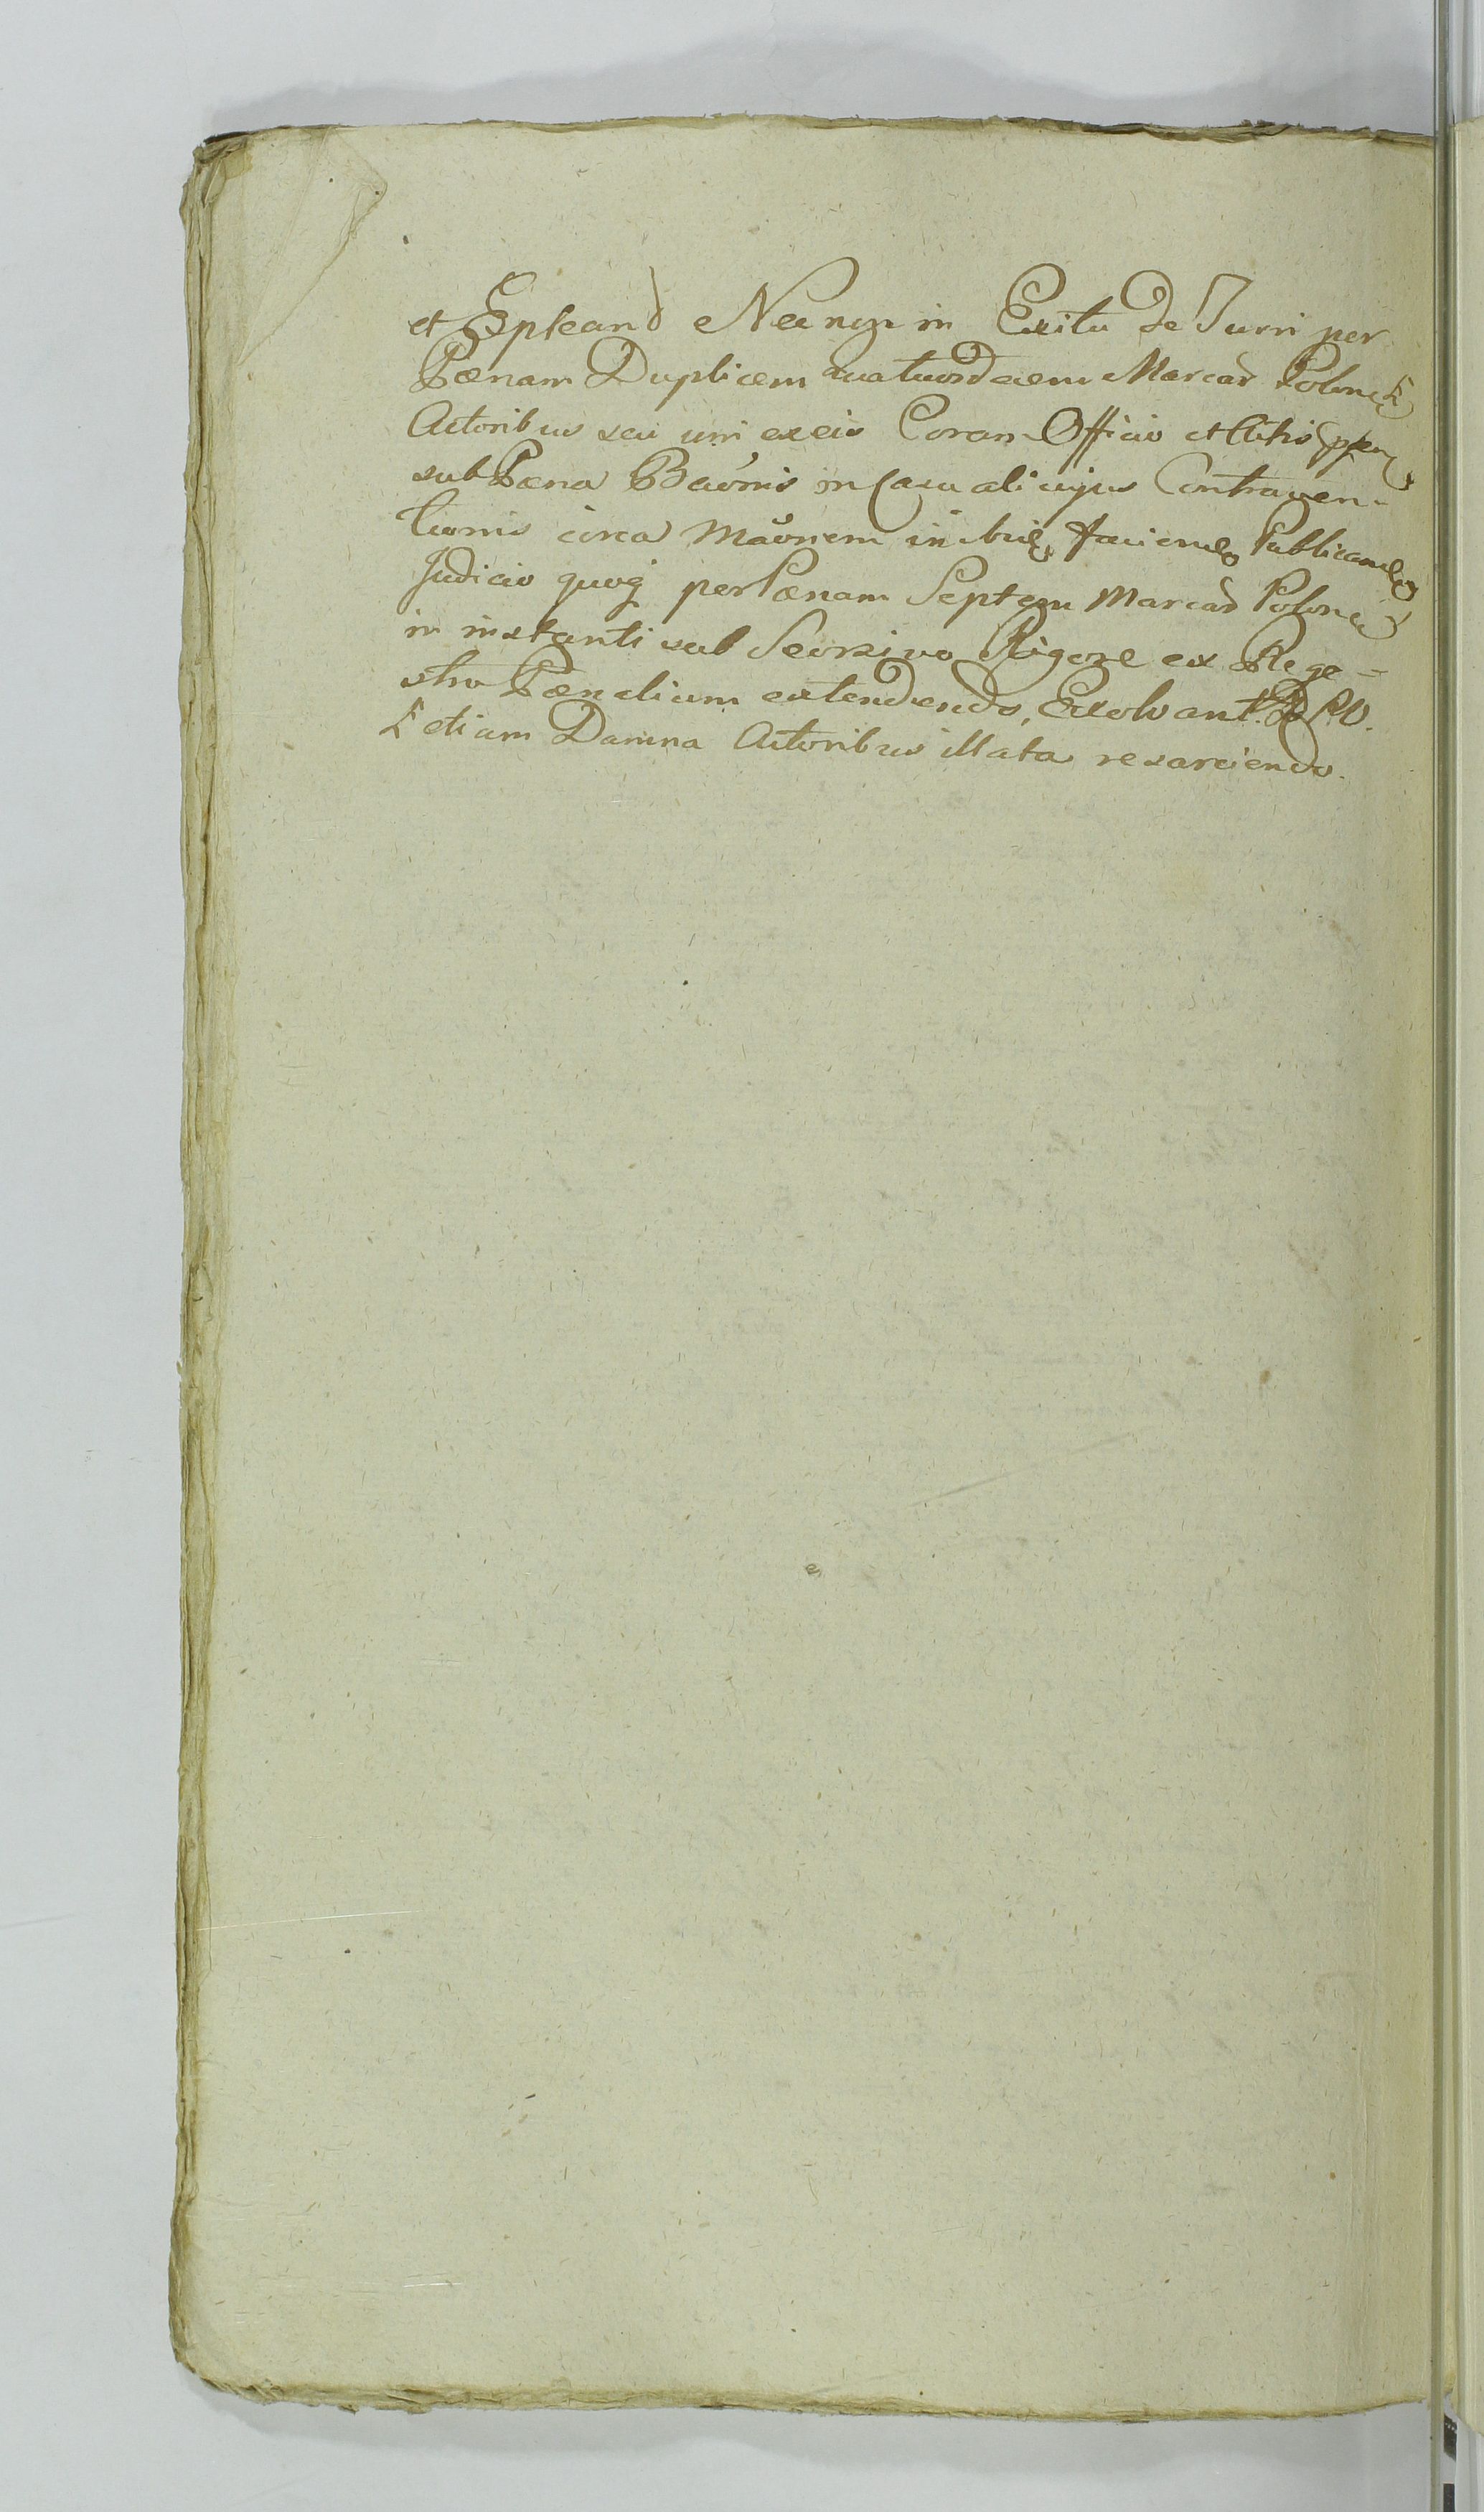 et Expleand Nec non in Exitu de Turri per
Pænam Duplicem quatuordecem Marcar Polonic
Actoribus seu uni exeis Coram Officio et Actis ppntt
sub Pæna Baõnis in Casu alicujus Contraven-
tionis circa Mãonem in bnē faciend Publicand
Judicio quoq per Pænam Septem Marcar Polonic
in instanti sub Seorsivo Rigore ex Rege-
stro Pænalium extendendo, Exolvant. D. P. V.
Ł etiam Damna Actoribus illata resarciendo.